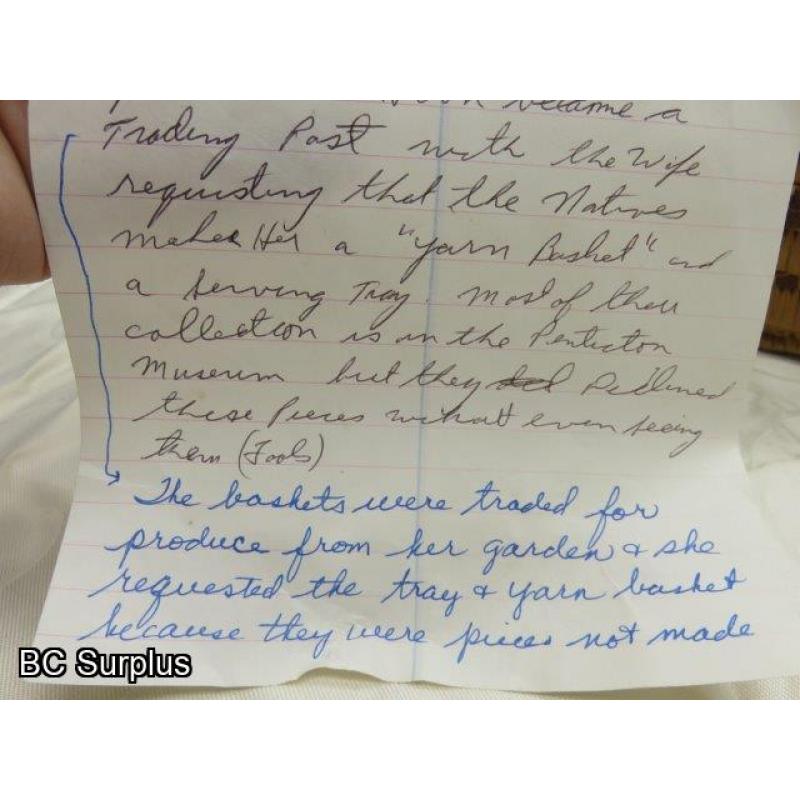 became a
Trading Post with the Wife
requisting that the Natives
makes Her a "yarn Basket" and
a serving Tray. Most of their
collection is in the Penticton
Museum but they declined
these pieces without even seeing
them (Fools)
The baskets were traded for
produce from her garden & she
requested the tray & yarn basket
because they were pieces not made
BC Surplus